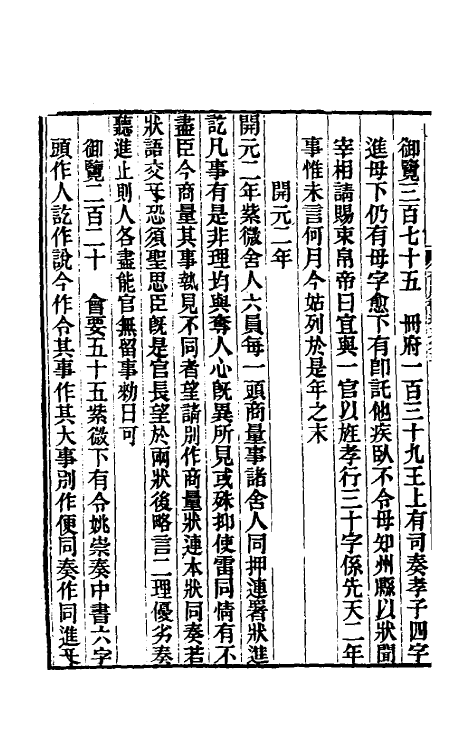 御覽三百七十五　冊府一百三十九王上有司奏孝子四字
進母下仍有母字愈下有卽託他疾臥不令母知州縣以狀聞
宰相請賜束帛帝曰宜與一官以旌孝行三十字係先天二年
事惟未言何月今姑列於是年之末
開元二年
開元二年紫微舍人六員每一頭商量事諸舍人同押連署狀進
訖凡事有是非理均與奪人心旣異所見或殊抑使雷同情有不
盡臣今商量其事執見不同者望請別作商量狀連本狀同奏若
狀語交互恐須聖思臣旣是官長望於兩狀後略言二理優劣奏
聽進止則人各盡能官無留事勅曰可
御覽二百二十　會要五十五紫微下有令姚崇奏中書六字
頭作人訖作說今作令其事作其大事別作便同奏作同進互